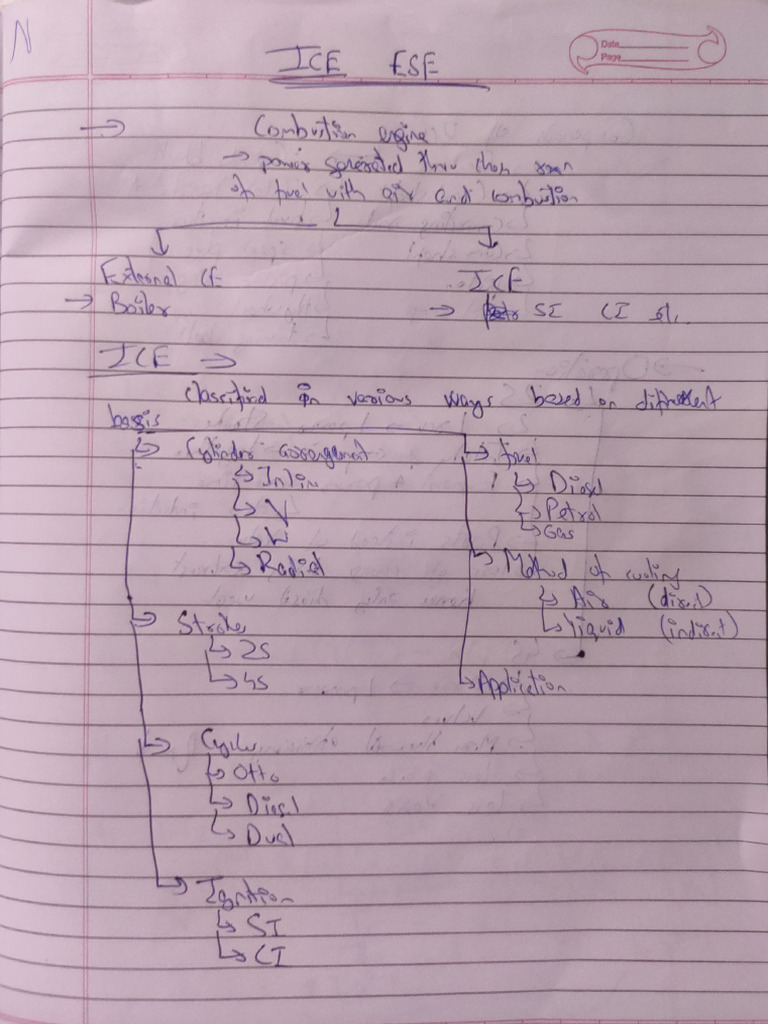 N
Date
Page
ICE ESE
→ Combustion engine
→ power generated thru chem rxn
of fuel with air and combustion
External CE
→ Boiler
ICE
→ SI CI etc.
ICE →
classified in various ways based on different
basis
→ Cylinder arrangement
→ Inline
→ V
→ W
→ Radial
→ Stroke
→ 2S
→ 4S
→ Cycle
→ Otto
→ Diesel
→ Dual
→ Ignition
→ SI
→ CI
→ fuel
→ Diesel
→ Petrol
→ Gas
→ Method of cooling
→ Air (direct)
→ liquid (indirect)
→ Application